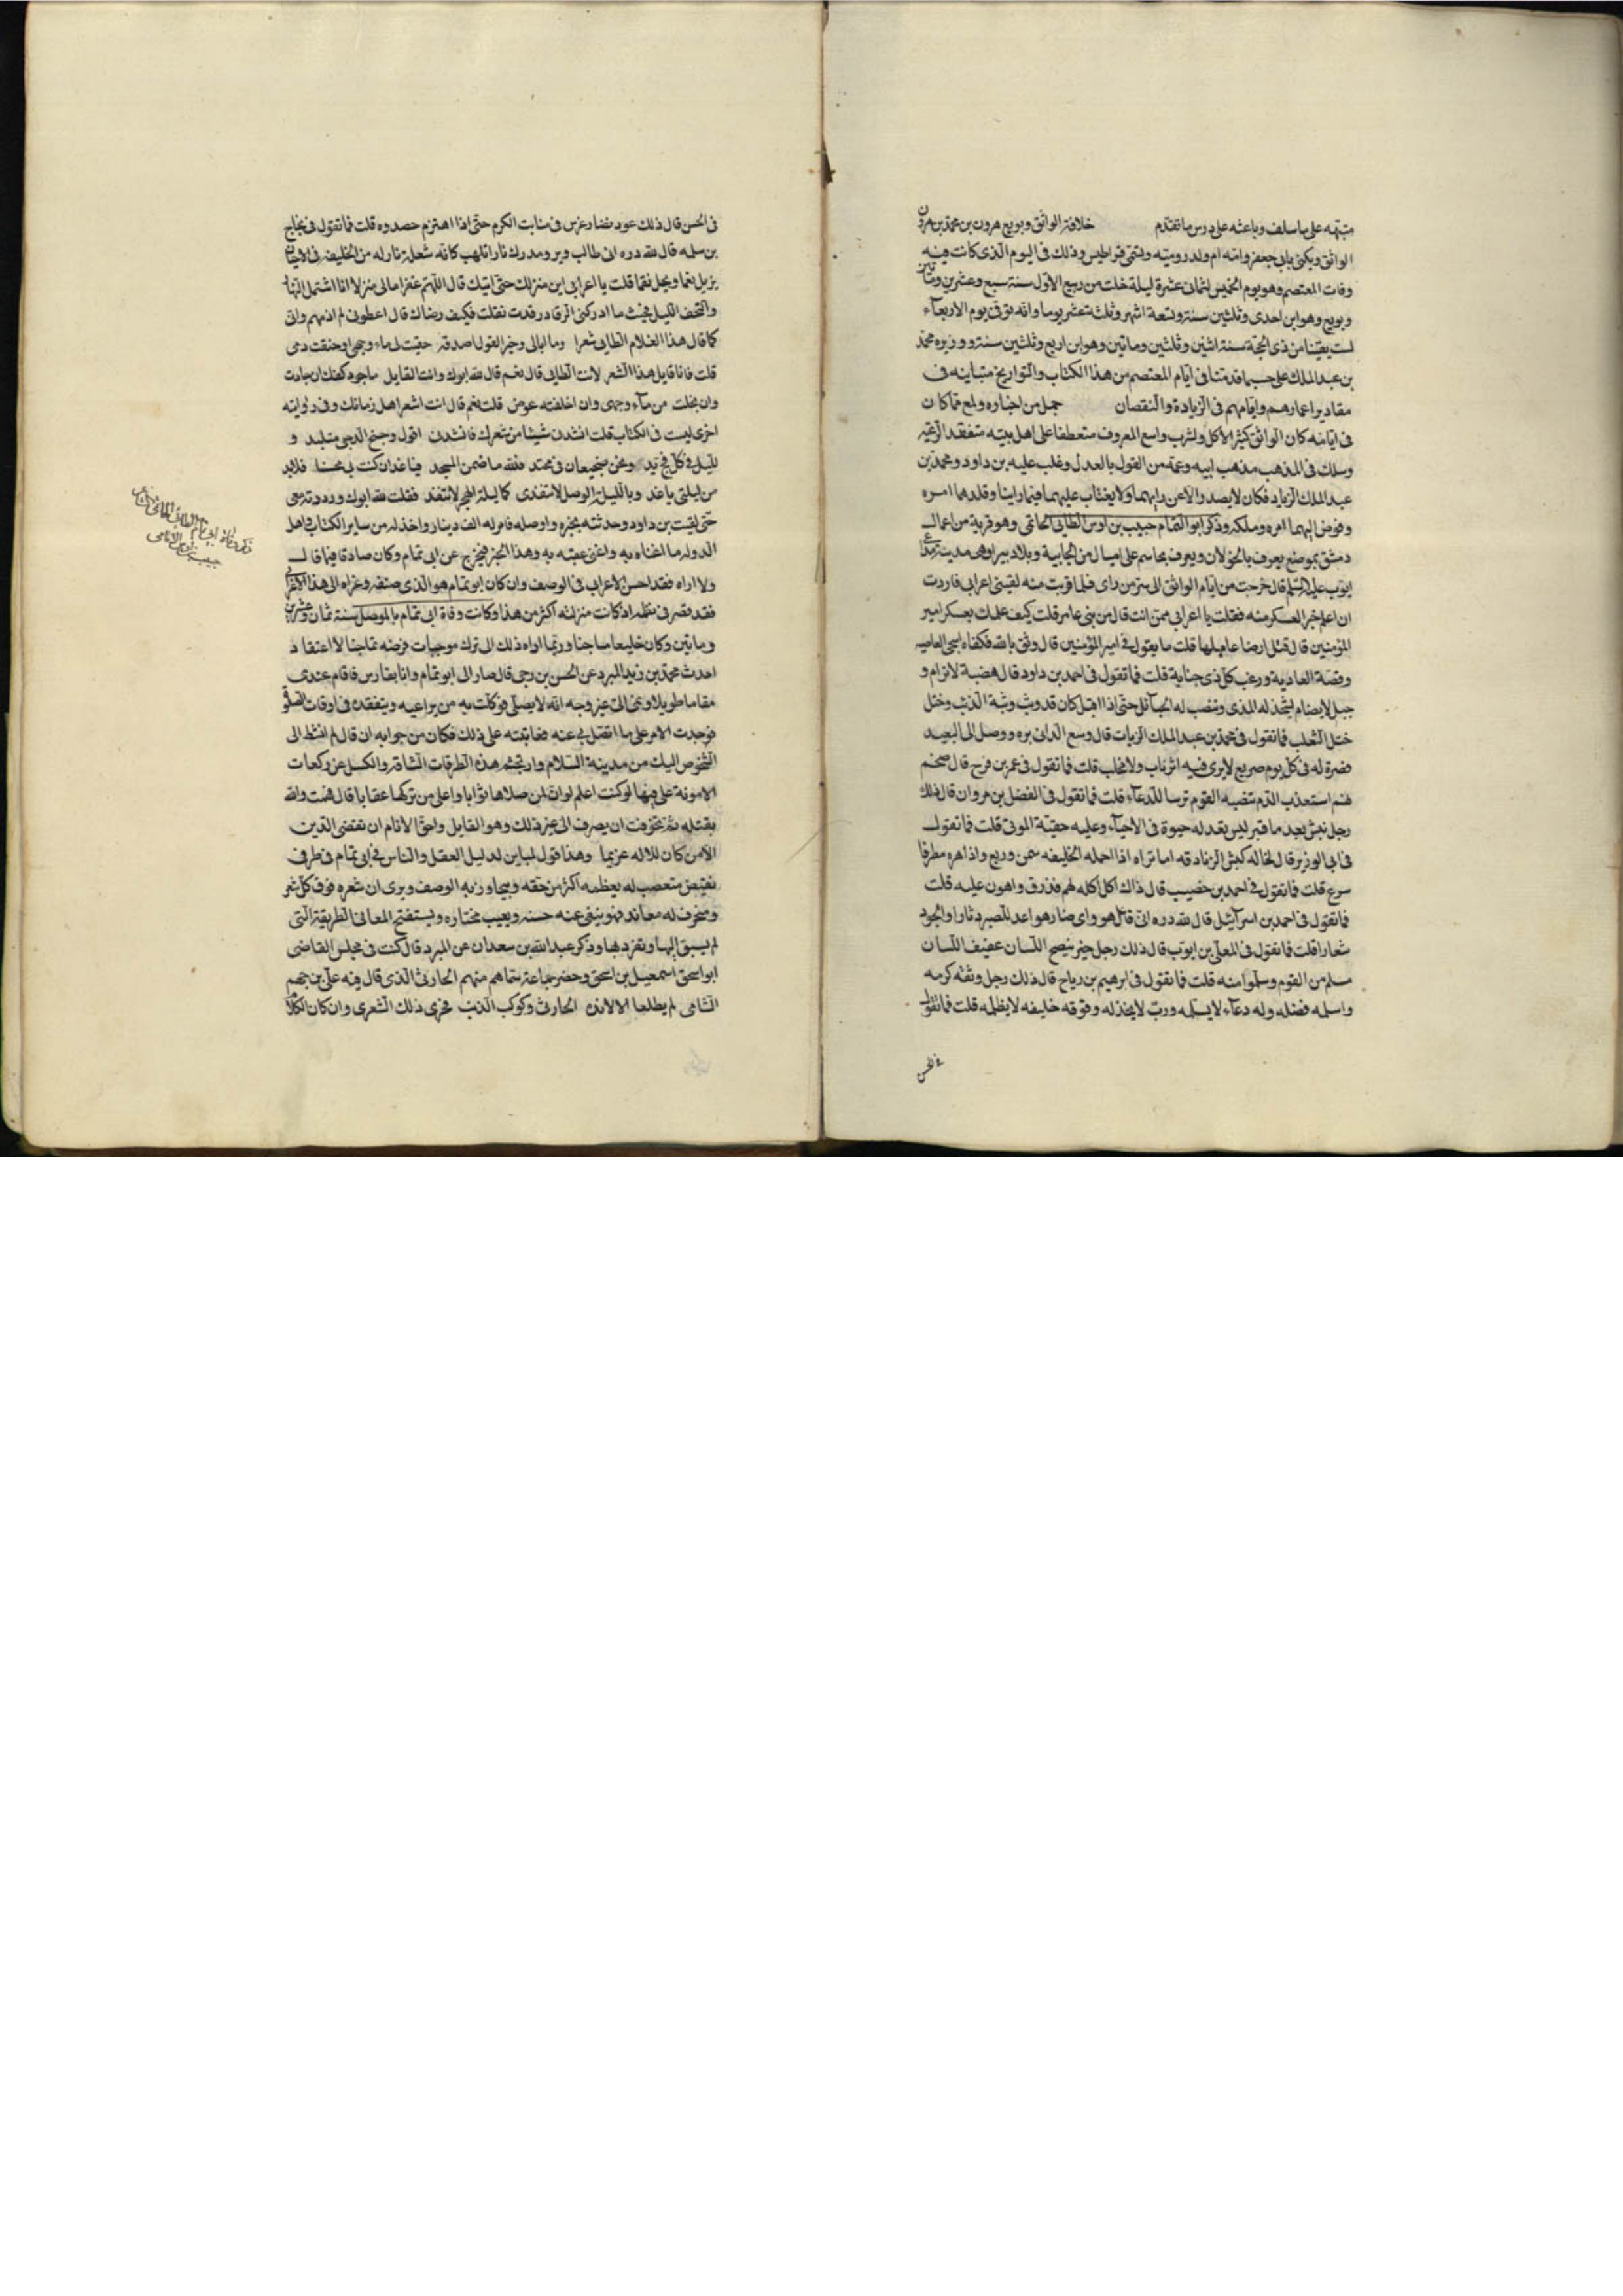 منبّهة على ما سلف وباعثة على درس ما تقدّم خلافة الواثق وبويع هرون بن محمد بن هرون
الواثق ويكنى بابى جعفر وامّه ام ولد روميّه وتسمّى قراطيس وذلك فى اليوم الّذى كانت فيه
وفات المعتصم وهو يوم الخميس لثمانى عشرة ليلة خلت من ربيع الاوّل سنة سبع وعشرين ومأتين
وبويع وهو ابن احدى وثلثين سنة وتسعة اشهر وثلثة عشر يوما وانّه توفى يوم الاربعآء
لست بقين من ذى الحجّة سنة اثنين وثلثين ومأتين وهو ابن اربع وثلثين سنة ووزيره محمّد
بن عبد الملك على حسب ما قدمنا فى ايّام المعتصم من هذا الكتاب والتواريخ متباينه فى
مقادير اعمارهم وايّامهم فى الزّيادة والنّقصان جمل من اخباره ولمع ممّا كان
فى ايّامه كان الواثق كثير الاكل والشرب واسع المعروف متعطفا على اهل بيته متفقد الرّعيّة
وسلك فى المذهب مذهب ابيه وعمّه من القول بالعدل وغلب عليه بن داود ومحمّد بن
عبد الملك الزيات فكان لا يصدر الّا عن رايهما ولا يعتاب عليهما فيما راينا وقلدهما امره
وفوّض اليهما امره وملكه وذكر ابو التّمام حبيب بن اوس الطائى الجاسمى وهو قرية من اعمال
دمشق بموضع يعرف بالخولان ويعرف بجاسم على اميال من الجابية وبلاد
ايّوب عليه السّلم قال خرجت من ايّام الواثق الى سرّ من راى فلما قربت منه لقينى اعرابى فاردت
ان اعلم خبر العسكر منه فقلت يا اعرابى ممّن انت قال من بنى عامر قلت كيف علمك بعسكر امير
المؤمنين قال قتل ارضا عاملها قلت ما يقول فى امير المؤمنين قال وثق بالله فكفاه اشجى العاصيه
وقصّة العادية ورغب كلّ ذى جناية قلت فما تقول فى احمد بن داود قال هضبة لا ترام و
جبل لا يضام تشحذ له المدى وتنصب له الحبآئل حتّى اذا اقبل كان قد وثب وثبة الذئب وختل
ختل الثعلب فما تقول فى محمّد بن عبد الملك الزيات قال وسع الدانى بره ووصل الى البعيد
ضرّه له فى كلّ يوم صريع لا يرى فيه اثر ناب ولا مخلب قلت فما تقول فى عمر بن فرج قال ضخم
نهم استعذب الدّم تنصبه القوم ترسا للدّعآء قلت فما تقول فى الفضل بن مروان قال ذلك
رجل نبش بعد ما قبر ليس يعد له حيوة فى الاحيآء وعليه خفيّة الموتى قلت فما تقول
فى ابى الوزير قال اخاله كبش الزنادقه اما تراه اذا احمله الخليفه سمن وربع واذا هزّه مطرفا
سرع قلت فما تقول فى احمد بن خضيب قال ذاك اكل اكله نهم فذرق واهون عليه قلت
فما تقول فى احمد بن اسرآئيل قال لله دره اىّ قائل هو واى صبار هو اعد للصبر دثارا والجود
شعارا قلت فما تقول فى المعلّى بن ايّوب قال ذلك رجل خير نصيح اللّسان عفيف اللّسان
مسلم من القوم وسلموا منه قلت فما تقول فى ابرهيم بن رياح قال ذلك رجل وثقه كرمه
واسلمه فضله وله دعآء لا يسلمه وربّ لا يخذله وفوقه خليفه لا يظلمه قلت فما تقول
فى الحسن
فى الحسن قال ذلك عود نضار غرس فى منابت الكرم حتّى اذا اهتز لهم حصدوه قلت فما تقول فى نجاح
بن سلمه قال لله دره اىّ طالب وتر ومدرك نار اتلهب كانّه شعلة نار له من الخليفه فى الاحيان
يزيل نعما ويحل نقما قلت يا اعرابى اين منزلك حتّى اتيك قال اللّهم غفرا مالى منزل انا اشتمل النّهار
والتحف اللّيل فحيث ما ادركنى الرقاد رقدت فقلت فكيف رضاك قال اعطونى لم اذمهم وانى
كما قال هذا الغلام الطائى شعرا وما ابالى وخير القول اصدقه حقنت لى ماء وجهى او حقنت دمى
قلت فانا قايل هذا الشعر لانت الطائى قال نعم قال لله ابوك وانت القايل ما جود كفك ان جادت
وان بخلت من ماء وجهى وان اخلفته عوض قلت نعم قال انت اشعر اهل زمانك وفى رواية
اخرى ليست فى الكتاب قلت انشدنى شيئا من شعرك فانشدنى اقول وجنح الدجى ملبد و
للّيل فى كلّ فج يد ونحن ضجيعان فى مجسد فلله ما ضمن المجسد فيا غد ان كنت بى محسنا فلا تدن
من ليلتى يا غد ويا ليلة الوصل لا تنفدى كما ليلة الهجر لا تنفد فقلت لله ابوك ورددته معى
حتّى لقيت بن داود وحدثته بخبره واوصله فامر له الف دينار واخذ له من سائر الكتاب واهل
الدوله ما اغناه به واغنى عقبه به وهذا الخبر مخرج عن ابى تمام وكان صادقا فيما قال
ولا اراه فقد احسن الاعرابى فى الوصف وان كان ابو تمام هو الذى صنفه وعزاه الى هذا الاعرابى
فقد قصر فى نظمه اذ كانت منزلته اكثر من هذا وكانت وفاة ابى تمام بالموصل سنة ثمان وعشرين
ومايتين وكان خليعا ماجنا وربّما اداه ذلك الى ترك موجبات فرضه تماجنا لا اعتقاد
احدث محمّد بن يزيد المبرد عن الحسن بن رجى قال صار الى ابو تمام وانا بفارس فاقام عندى
مقاما طويلا ونمى الىّ من غير وجه انّه لا يصلّى فوكلت به من يراعيه ويتفقده فى اوقات الصلوة
فوجدت الامر على ما اتصل بى عنه فعاتبته على ذلك فكان من جوابه ان قال لم انشط الى
الشخوص اليك من مدينة السّلام واتجشّم هذه الطرقات الشّاقة والكسل عن ركعات
لا مونة علىّ فيها لو كنت اعلم لو انّ لمن صلاها ثوابا وعلى من تركها عقابا قال فهممت والله
بقتله ثمّ تخوّفت ان يصرف الى غير ذلك وهو القايل واحقّ الانام ان يقضى الدّين
الّا من كان للاله غريما وهذا قول مباين لدليل العقل والناس فى ابى تمام فى طرفى
نقيض متعصب له يعظمه اكثر من حقّه ويجاوز به الوصف ويرى ان شعره فوق كلّ شعر
ومنحرف له معاند فهو ينفى عنه حسنه ويعيب مختاره ويستقبح المعانى الظريفة الّتى
لم يسبق اليها وتفرّد بها وذكر عبد الله بن سعدان عن المبرد قال كنت فى مجلس القاضى
ابو اسحق اسمعيل بن اسحق وحضر جماعة سمّاهم منهم الحارثى الّذى قال فيه علىّ بن جهم
الشّامى لم يطلعا الّا لابده الحارثى وكوكب الذنب فجرى ذلك الشعرى وان كان الكلام
ذكر وفاة ابى تمام الطائى
حبيب بن اوس